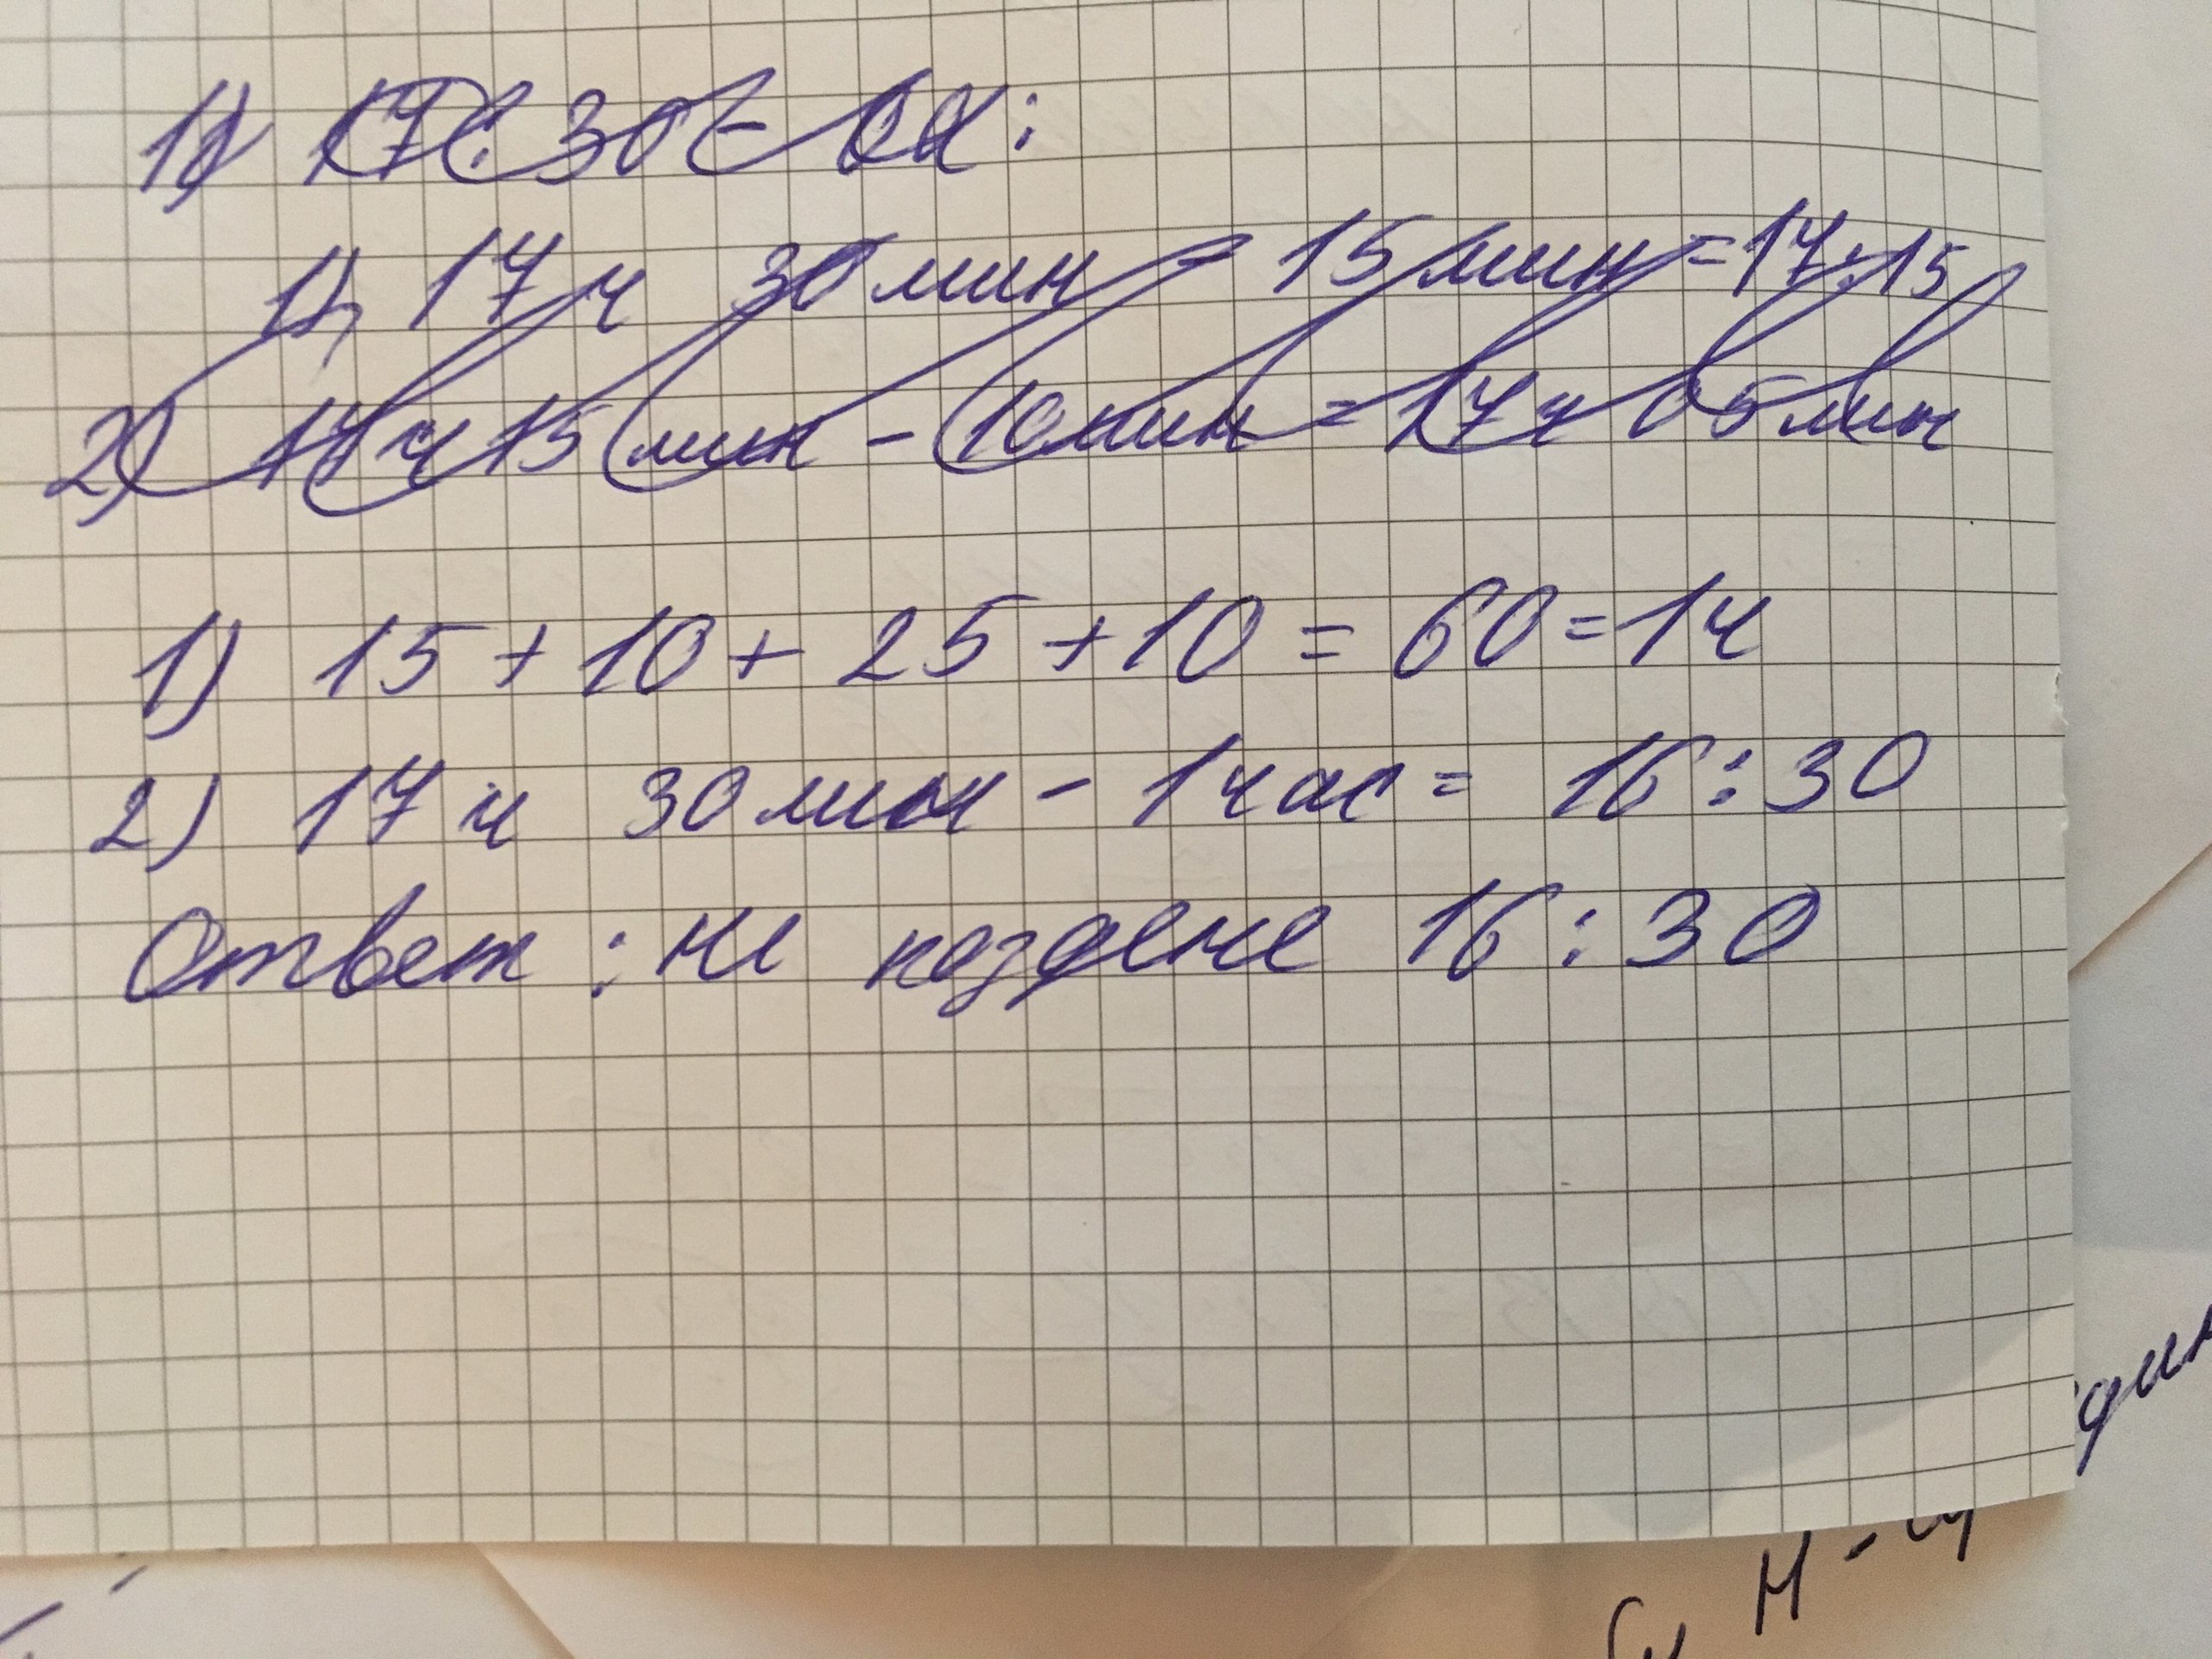 1) 17:30 -
1) 17 ч 30 мин - 15 мин = 17:15
2) 17 ч 15 мин - 10 мин = 17 ч 05 мин
1) 15 + 10 + 25 + 10 = 60 = 1 ч
2) 17 ч 30 мин - 1 час = 16:30
Ответ: не позднее 16:30